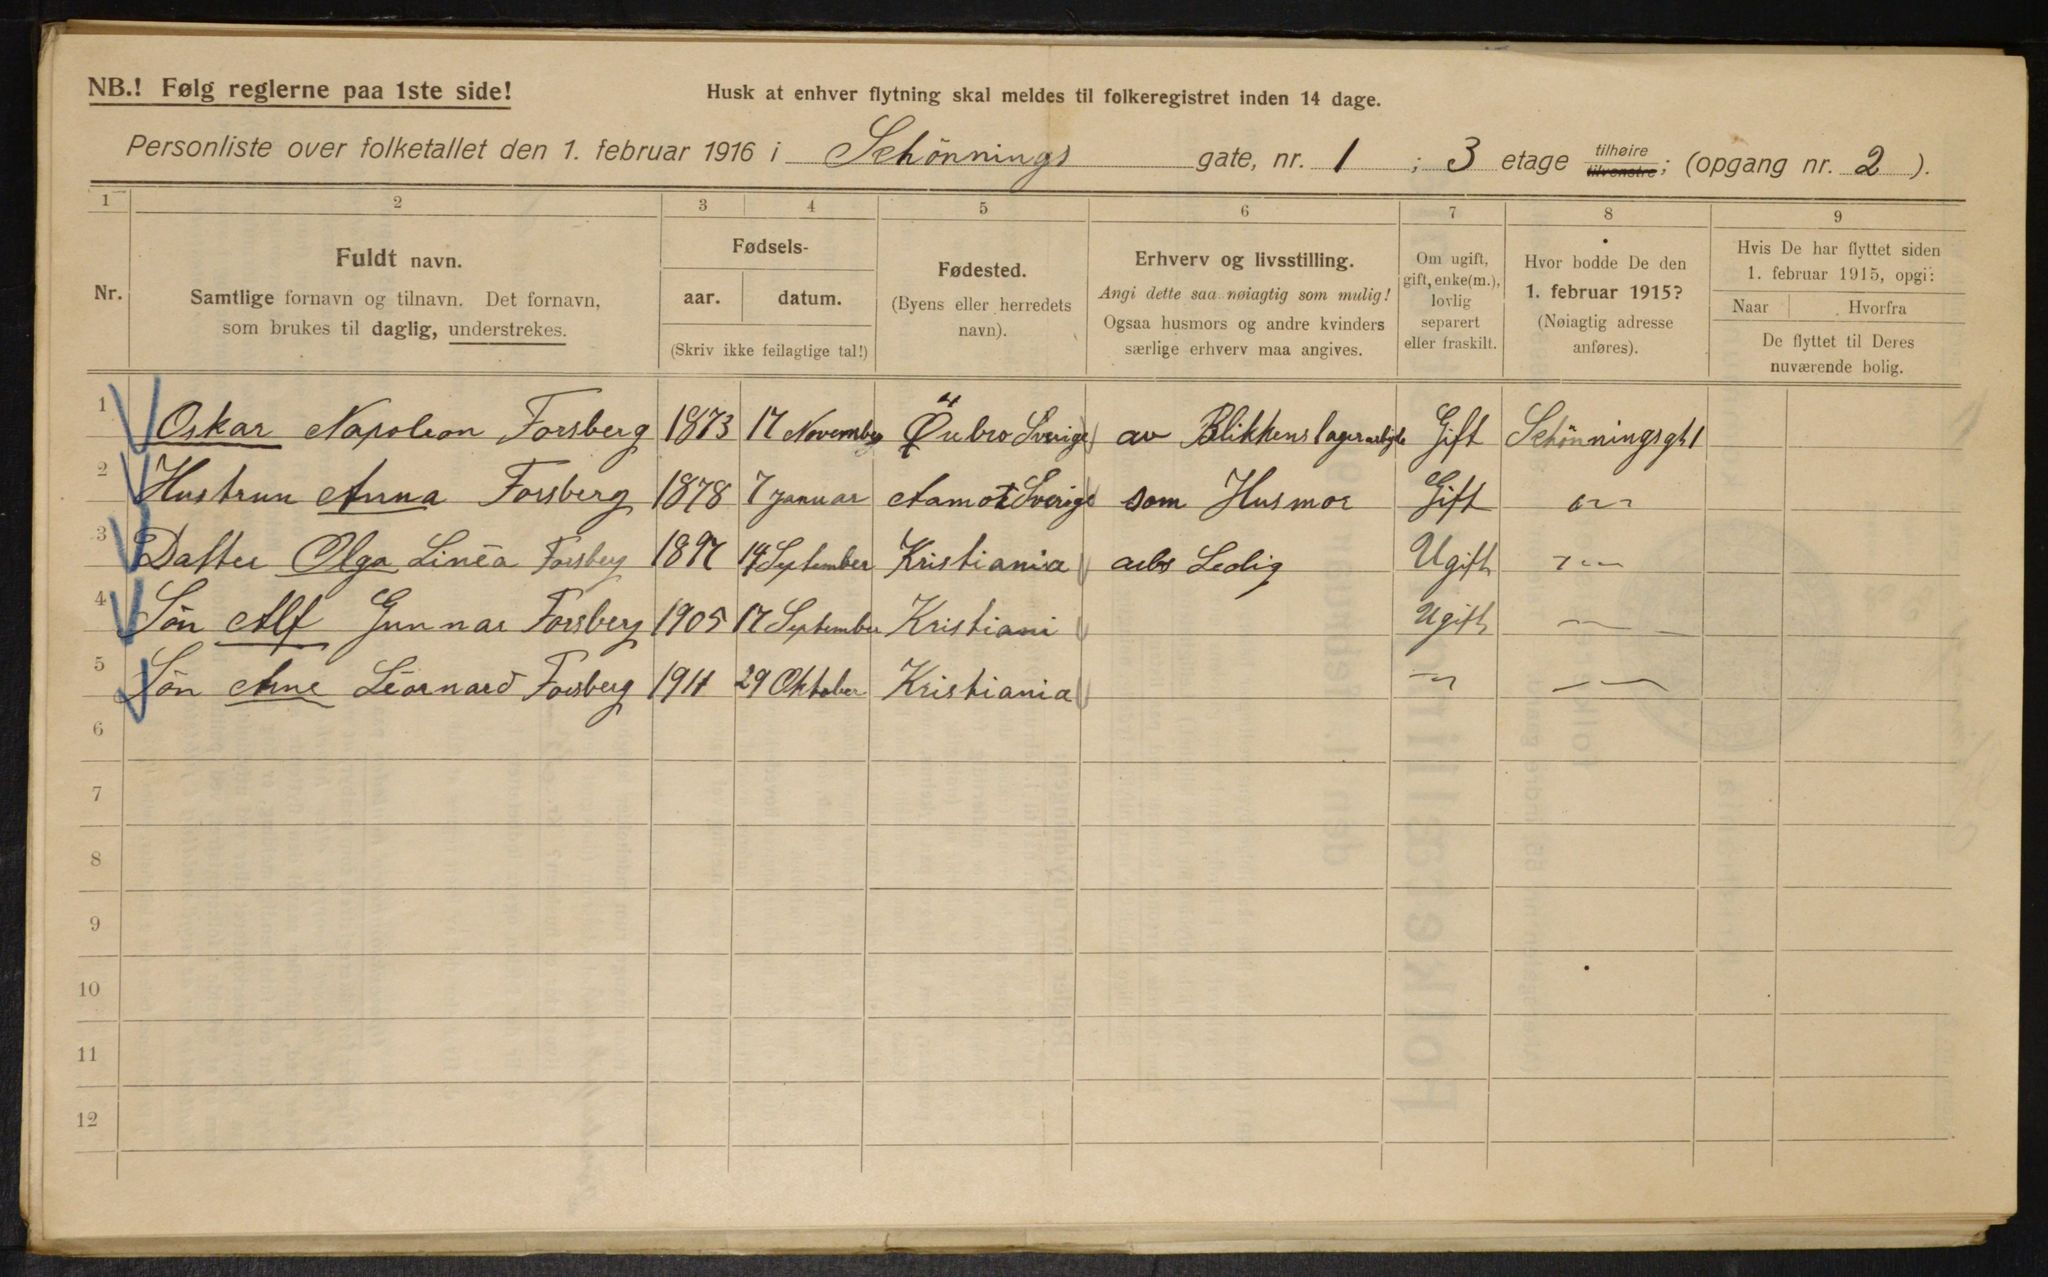 NB.! Følg reglerne paa 1ste side!
Husk at enhver flytning skal meldes til folkeregistret inden 14 dage.
Personliste over folketallet den 1. februar 1916 i Schönnings gate, nr. 1 ; 3 etage tilhøire tilvenstre; (opgang nr. 2 ).
1 2 3 4 5 6 7 8 9
Nr.
Fuldt navn.
Samtlige fornavn og tilnavn. Det fornavn,
som brukes til daglig, understrekes.
Fødsels-
aar. datum.
(Skriv ikke feilagtige tal!)
Fødested.
(Byens eller herredets
navn).
Erhverv og livsstilling.
Angi dette saa nøiagtig som mulig!
Ogsaa husmors og andre kvinders
særlige erhverv maa angives.
Om ugift,
gift, enke(m.),
lovlig
separert
eller fraskilt.
Hvor bodde De den
1. februar 1915?
(Nøiagtig adresse
anføres).
Hvis De har flyttet siden
1. februar 1915, opgi:
Naar Hvorfra
De flyttet til Deres
nuværende bolig.
1 Oskar Napoleon Forsberg 1873 17 November Örebro Sverige av Gift Schönningsgt 1
2 Hustrun Anna Forsberg 1878 7 Januar Aamot Sverige som Husmor Gift
3 Datter Olga Linéa Forsberg 1897 14 September Kristiania Ledig Ugift
4 Sön Alf Gunnar Forsberg 1905 17 September Kristiani Ugift
5 Sön Arne Léornard Forsberg 1911 29 Oktober Kristiania
6
7
8
9
10
11
12